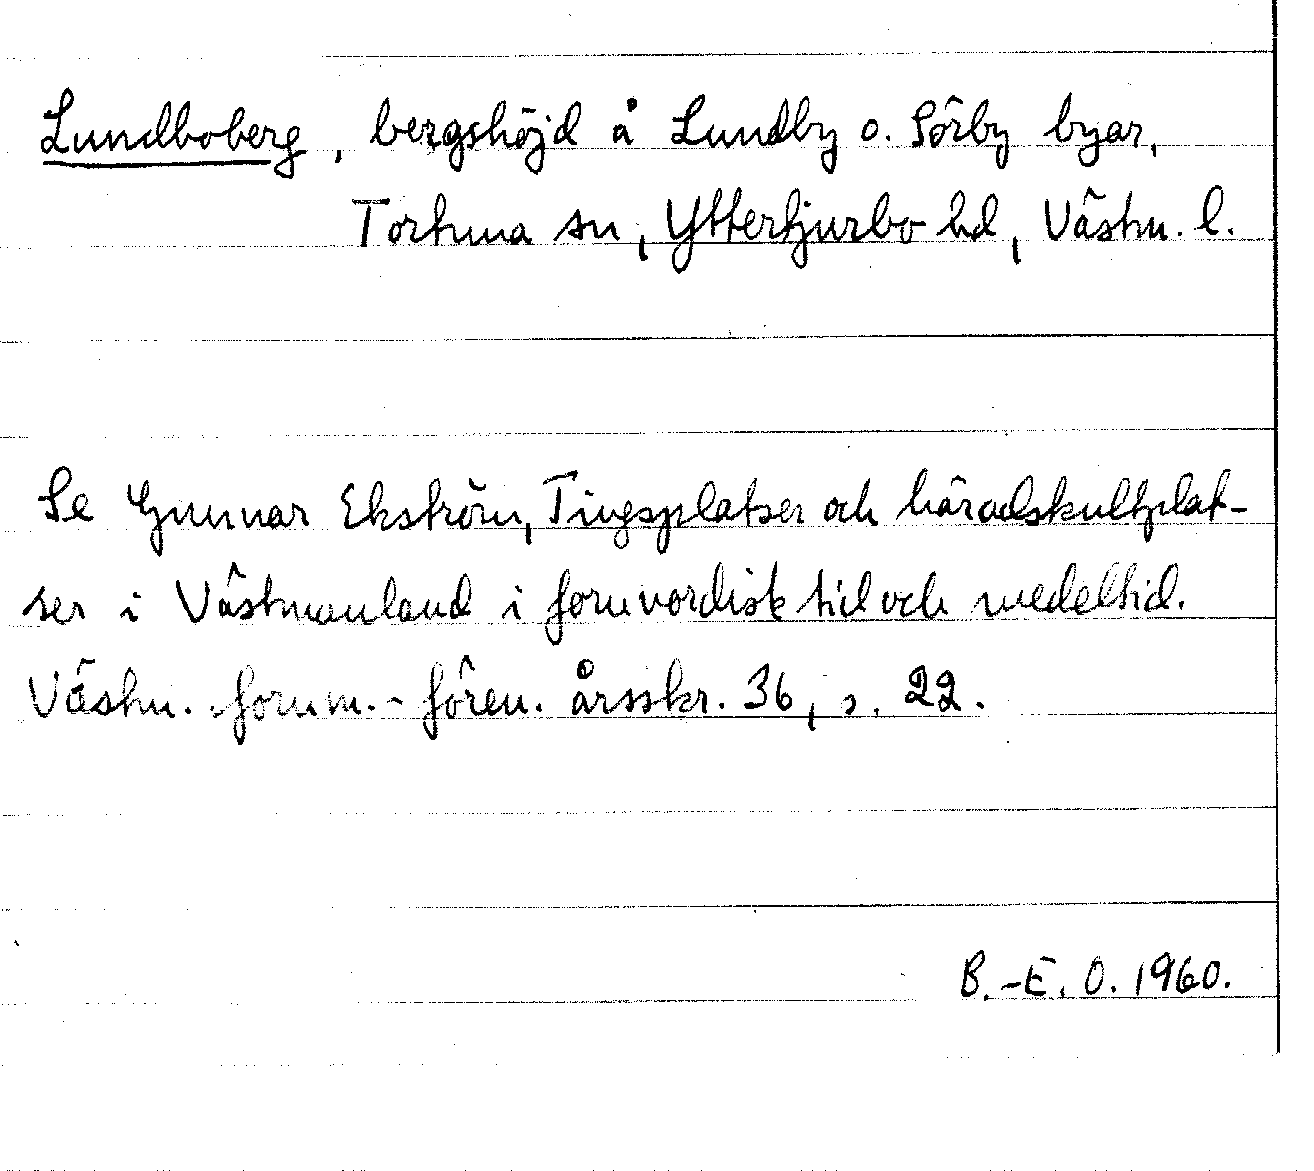 Lundboberg, bergshöjd å Lundby o. Sörby byar,
Tortuna sn, Yttertjurbo hd, Västm. l.
Se Gunnar Ekström, Tingsplatser och häradskultplat-
ser i Västmanland i fornnordisk tid och medeltid.
Västm. fornm.-fören. årsskr. 36, s. 22.
B.-E. O. 1960.